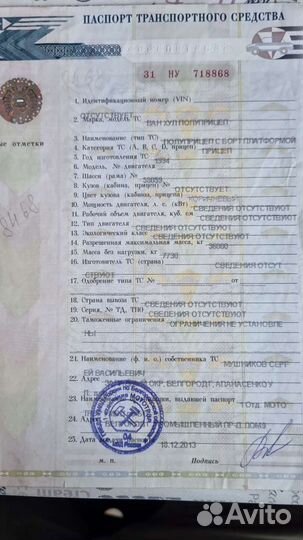 ПАСПОРТ ТРАНСПОРТНОГО СРЕДСТВА
31 НУ 718868
1. Идентификационный номер (VIN)
ОТСУТСТВУЕТ
2. Марка, модель ТС ВАН ХУЛ ПОЛУПРИЦЕП
3. Наименование (тип ТС) ПОЛУПРИЦЕП С БОРТ ПЛАТФОРМОЙ
4. Категория ТС (A, B, C, D, прицеп) ПРИЦЕП
5. Год изготовления ТС 1994
6. Модель, № двигателя
7. Шасси (рама) № 38659
8. Кузов (кабина, прицеп) № ОТСУТСТВУЕТ
9. Цвет кузова (кабины, прицепа) КОРИЧНЕВЫЙ
10. Мощность двигателя, л. с. (кВт) ОТСУТСТВУЕТ
11. Рабочий объем двигателя, куб. см ОТСУТСТВУЕТ
12. Тип двигателя СВЕДЕНИЯ ОТСУТСТВУЮТ
13. Экологический класс СВЕДЕНИЯ ОТСУТСТВУЮТ
14. Разрешенная максимальная масса, кг 36000
15. Масса без нагрузки, кг 7730
16. Изготовитель ТС (страна) СВЕДЕНИЯ ОТСУТ
СТВУЮТ
17. Одобрение типа ТС № от
18. Страна вывоза ТС СВЕДЕНИЯ ОТСУТСТВУЮТ
19. Серия, № ТД, ТПО СВЕДЕНИЯ ОТСУТСТВУЮТ
20. Таможенные ограничения ОГРАНИЧЕНИЯ НЕ УСТАНОВЛЕ
НЫ
21. Наименование (ф. и. о.) собственника ТС МУШНИКОВ СЕРГ
ЕЙ ВАСИЛЬЕВИЧ
22. Адрес ОКР, БЕЛГОРОД Г, АПАНАСЕНКО У
23. Наименование организации, выдавшей паспорт 1 ОТД. МОТО
24. Адрес
25. Дата 18.12.2013
м. п. Подпись
ые отметки
Avito